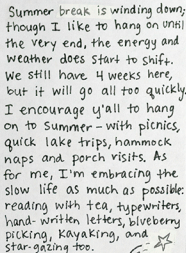 Summer break is winding down;
though I like to hang on until
the very end, the energy and
weather does start to shift.
We still have 4 weeks here,
but it will go all too quickly.
I encourage y'all to hang
on to Summer - with picnics,
quick lake trips, hammock
naps and porch visits. As
for me, I'm embracing the
slow life as much as possible:
reading with tea, typewriters,
hand-written letters, blueberry
picking, kayaking, and
star-gazing too.